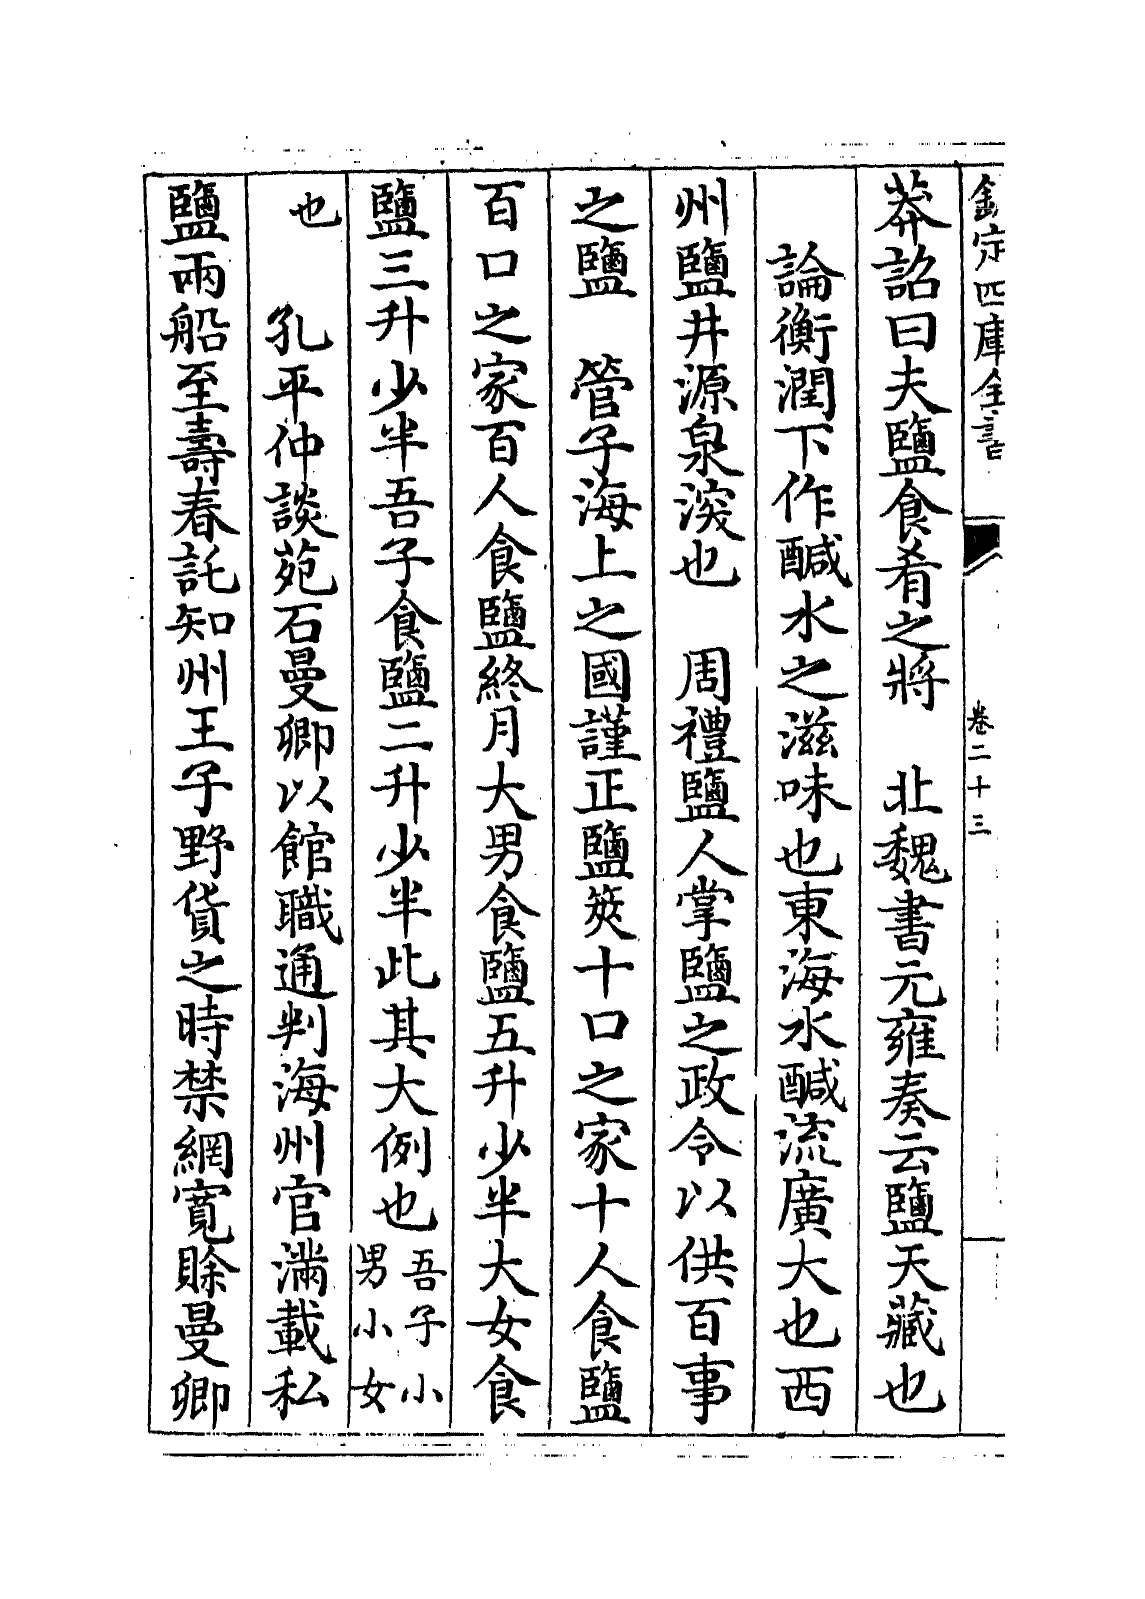 欽定四庫全書 卷二十三
莽詔曰夫鹽食肴之將 北魏書元雍奏云鹽天藏也
論衡潤下作鹹水之滋味也東海水鹹流廣大也西
州鹽井源泉深也 周禮鹽人掌鹽之政令以供百事
之鹽 管子海上之國謹正鹽筴十口之家十人食鹽
百口之家百人食鹽終月大男食鹽五升少半大女食
鹽三升少半吾子食鹽二升少半此其大例也吾子小
男小女
也 孔平仲談苑石曼卿以館職通判海州官滿載私
鹽兩船至壽春託知州王子野貨之時禁網寬賖曼卿